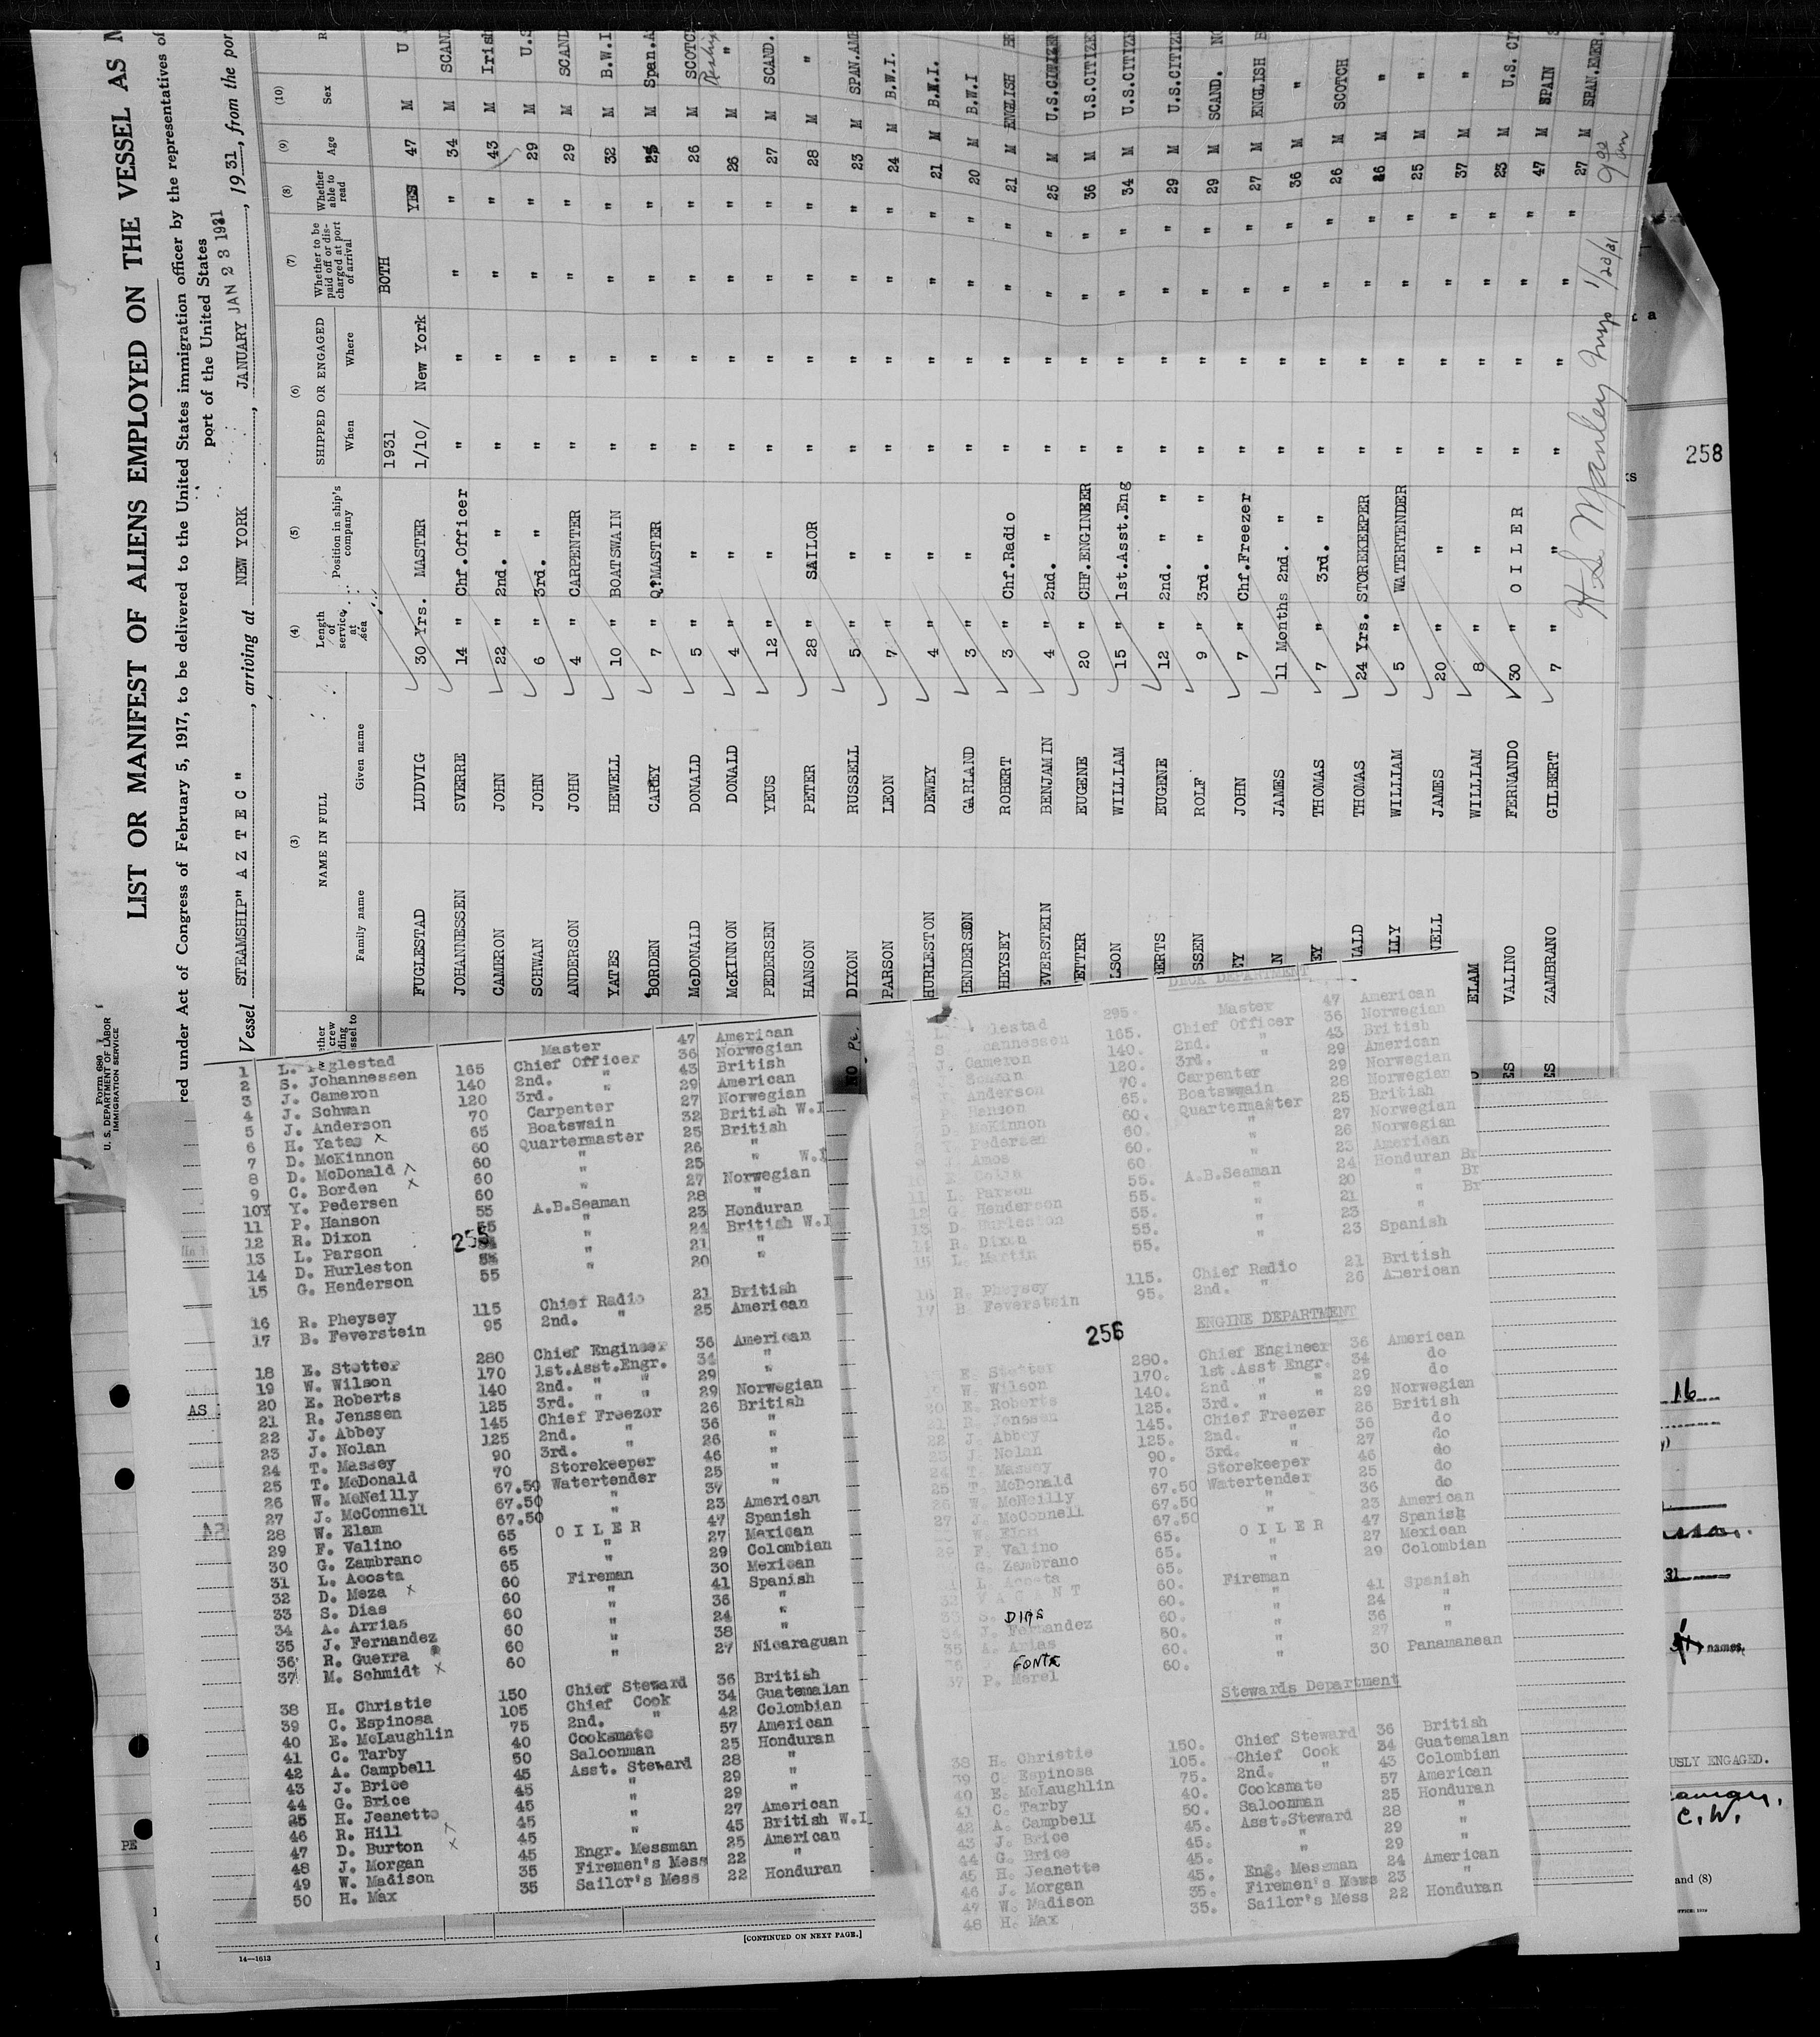 LIST OR MANIFEST OF ALIENS EMPLOYED ON THE VESSEL AS
red under Act of Congress of February 5, 1917, to be delivered to the United States immigration officer by the representatives of
port of the United States
Vessel STEAMSHIP" A Z T E C ", arriving at NEW YORK, JANUARY JAN 23 1931, 1931, from the por
Form 680
U. S. DEPARTMENT OF LABOR
IMMIGRATION SERVICE
(3) (4) (5) (6) (7) (8) (9) (10)
NAME IN FULL Length of service at sea Position in ship's company SHIPPED OR ENGAGED Whether to be paid off or discharged at port of arrival Whether able to read Age Sex R
Family name Given name When Where
1931 BOTH
FUGLESTAD LUDVIG 30 Yrs. MASTER 1/10/ New York YES 47 M U
JOHANNESSEN SVERRE 14 " Chf.Officer " " " " 34 M SCAN
CAMERON JOHN 22 " 2nd. " " " " " 43 M Irish
SCHWAN JOHN 6 " 3rd. " " " " " 29 M U.S
ANDERSON JOHN 4 " CARPENTER " " " " 29 M SCAND
YATES HEWELL 10 " BOATSWAIN " " " " 32 M B.W.I
BORDEN CAREY 7 " Q'MASTER " " " " 25 M Span.A
McDONALD DONALD 5 " " " " " " 26 M SCOTC
McKINNON DONALD 4 " " " " " " 26 M "
PEDERSEN YEUS 12 " " " " " " 27 M SCAND.
HANSON PETER 28 " SAILOR " " " " 28 M "
DIXON RUSSELL 5 " " " " " " 23 M SPAN.AME
PARSON LEON 7 " " " " " " 24 M B.W.I.
HURLESTON DEWEY 4 " " " " " " 21 M B.W.I.
HENDERSON GARLAND 3 " " " " " " 20 M B.W.I
HEYSEY ROBERT 3 " Chf.Radio " " " " 21 M ENGLISH
EVERSTEIN BENJAMIN 4 " 2nd. " " " " " 25 M U.S.CITIZEN
ETTER EUGENE 20 " CHF.ENGINEER " " " " 36 M U.S.CITIZE
LSON WILLIAM 15 " 1st.Asst.Eng " " " " 34 M U.S.CITIZE
BERTS EUGENE 12 " 2nd. " " " " " " 29 M U.S.CITIZ
SSEN ROLF 9 " 3rd. " " " " " " 29 M SCAND.
EY JOHN 7 " Chf.Freezer " " " " 27 M ENGLISH
N JAMES 11 Months 2nd. " " " " " 36 M "
EY THOMAS 7 " 3rd. " " " " " 26 M SCOTCH
ALD THOMAS 24 Yrs. STOREKEEPER " " " " 46 M "
LLY WILLIAM 5 " WATERTENDER " " " " 25 M "
NELL JAMES 20 " " " " " " 37 M "
ELAM WILLIAM 8 " " " " " " 23 M U.S. CI
VALINO FERNANDO 30 " O I L E R " " " " 47 M SPAIN
ZAMBRANO GILBERT 7 " " " " " " 27 M SPAN.AMER.
H. S. Manley Insp 1/23/31
258
1 L. Fuglestad Master 47 American
2 S. Johannessen 165 Chief Officer 36 Norwegian
3 J. Cameron 140 2nd. " 43 British
4 J. Schwan 120 3rd. " 29 American
5 J. Anderson 70 Carpenter 27 Norwegian
6 H. Yates x 65 Boatswain 32 British W.I
7 D. McKinnon 60 Quartermaster 25 British
8 D. McDonald 60 " 26 "
9 C. Borden x 60 " 25 " W.I
10 Y. Pedersen 60 " 27 Norwegian
11 P. Hanson 55 A.B.Seaman 28 "
12 R. Dixon 55 " 23 Honduran
13 L. Parson " 24 British W.I
14 D. Hurleston " 21 "
15 G. Henderson 55 " 20 "
255
16 R. Pheysey 115 Chief Radio 21 British
17 B. Feverstein 95 2nd. " 25 American
18 E. Stetter 280 Chief Engineer 36 American
19 W. Wilson 170 1st.Asst.Engr. 34 "
20 E. Roberts 140 2nd. " " 29 "
21 R. Jenssen 125 3rd. " " 29 Norwegian
22 J. Abbey 145 Chief Freezer 26 British
23 J. Nolan 125 2nd. " 36 "
24 T. Massey 90 3rd. " 26 "
25 T. McDonald 70 Storekeeper 46 "
26 W. McNeilly 67.50 Watertender 25 "
27 J. McConnell 67.50 " 37 "
28 W. Elam 67.50 " 23 American
29 F. Valino 65 O I L E R 47 Spanish
30 G. Zambrano 65 " 27 Mexican
31 L. Acosta 65 " 29 Colombian
32 D. Meza x 60 Fireman 30 Mexican
33 S. Dias 60 " 41 Spanish
34 A. Arrias 60 " 36 "
35 J. Fernandez 60 " 24 "
36 R. Guerra 60 " 38 "
37 M. Schmidt x 60 " 27 Nicaraguan
38 H. Christie 150 Chief Steward 36 British
39 C. Espinosa 105 Chief Cook 34 Guatemalan
40 E. McLaughlin 75 2nd. " 42 Colombian
41 C. Tarby 40 Cooksmate 57 American
42 A. Campbell 50 Saloonman 25 Honduran
43 J. Brice 45 Asst. Steward 28 "
44 G. Brice 45 " 29 "
45 H. Jeanette 45 " 29 "
46 R. Hill 45 " 27 American
47 D. Burton 45 " 45 British W.I
48 J. Morgan 45 Engr. Messman 25 American
49 W. Madison 35 Firemen's Mess 22 "
50 H. Max 35 Sailor's Mess 22 Honduran
[CONTINUED ON NEXT PAGE.]
14—1613
DECK DEPARTMENT
lestad 295. Master 47 American
S. Johannessen 165. Chief Officer 36 Norwegian
J. Cameron 140. 2nd. " 43 British
Schwan 120. 3rd. " 29 American
Anderson 70. Carpenter 29 Norwegian
Hanson 65. Boatswain 28 Norwegian
D. McKinnon 60. Quartermaster 25 British
Y. Pedersen 60. " 27 Norwegian
J. Amos 60. " 26 Norwegian
10 60. " 23 American
11 L. Parson 55. A.B.Seaman 24 Honduran Br
12 G. Henderson 55. " 20 " Br
13 D. Hurleston 55. " 21 " Br
14 R. Dixon 55. " 23 "
15 L. Martin 55. " 23 Spanish
16 R. Pheysey 115. Chief Radio 21 British
17 B Feverstein 95. 2nd. " 26 American
256
ENGINE DEPARTMENT
E. Stetter 280. Chief Engineer 36 American
19 W. Wilson 170. 1st.Asst Engr. 34 do
20 E. Roberts 140. 2nd " " 29 do
21 R. Jenssen 125. 3rd. " " 29 Norwegian
22 J. Abbey 145. Chief Freezer 26 British
23 J. Nolan 125. 2nd. " 36 do
24 T. Massey 90. 3rd. " 27 do
25 T. McDonald 70 Storekeeper 46 do
26 W. McNeilly 67.50 Watertender 25 do
27 J. McConnell 67.50 " 36 do
W. Elam 67.50 " 23 American
29 F. Valino 65. O I L E R 47 Spanish
G. Zambrano 65. " 27 Mexican
L. Acosta 65. " 29 Colombian
32 60. Fireman
33 S. DIAS 60. " 41 Spanish
34 J. Fernandez 60. " 24 "
35 A. Arias 60. " 36 "
36 FONTE 60. " 27 "
37 P. Morel 60. " 30 Panamanean
Stewards Department
38 H. Christie 150. Chief Steward 36 British
39 C. Espinosa 105. Chief Cook 34 Guatemalan
40 E. McLaughlin 75. 2nd. " 43 Colombian
41 C. Tarby 40. Cooksmate 57 American
42 A. Campbell 50. Saloonman 25 Honduran
43 J. Brice 45. Asst.Steward 28 "
44 G. Brice 45. " 29 "
45 H. Jeanette 45. " 29 "
46 J. Morgan 45. Eng. Messman 24 American
47 W. Madison 35. Firemen's Mess 23 "
48 H. Max 35. Sailor's Mess 22 Honduran
16
names,
USLY ENGAGED.
C.W.
and (8)